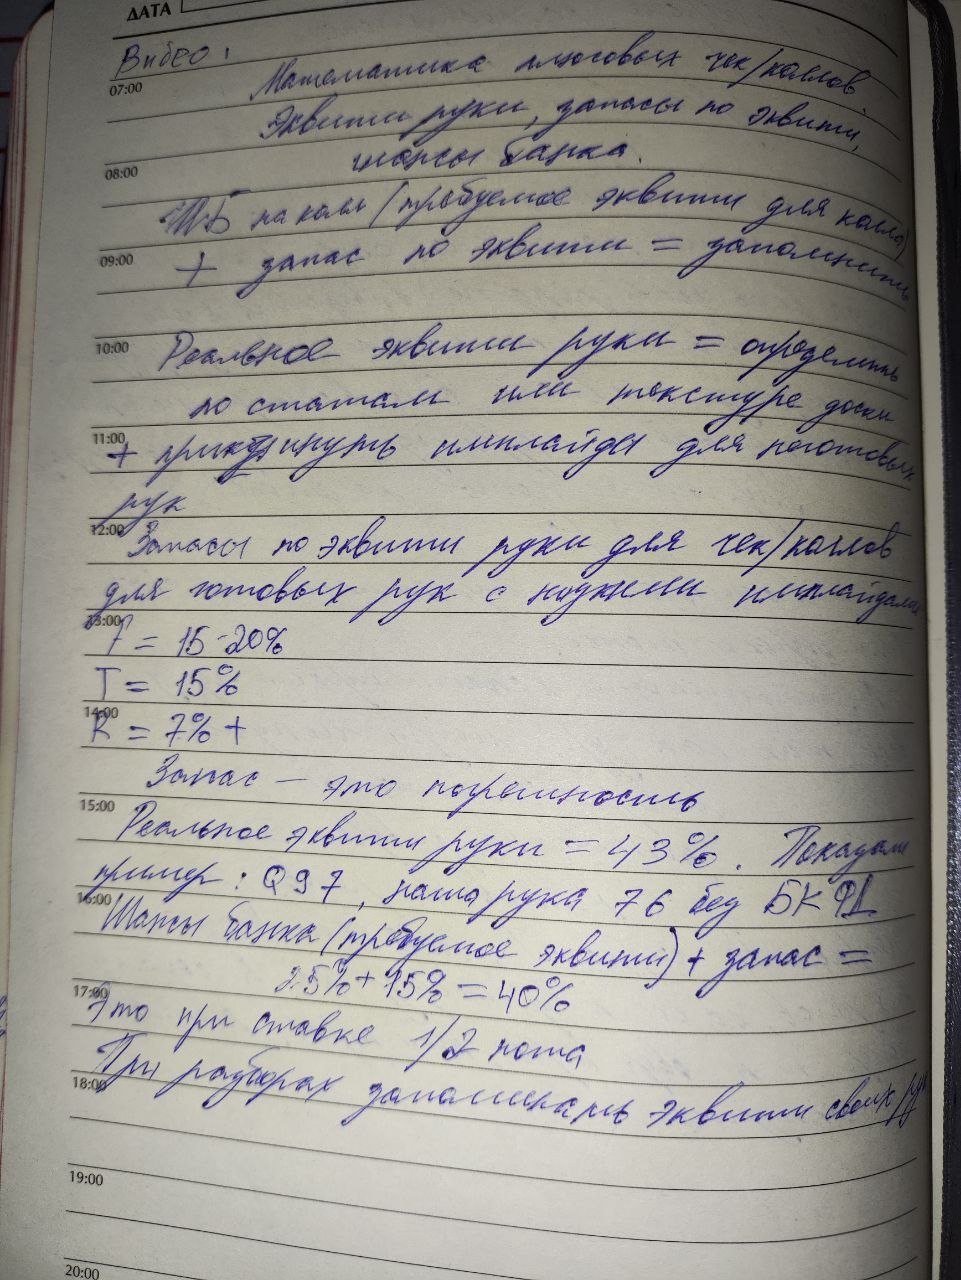 ДАТА
Видео:
07:00
Математика плюсовых чек/коллов.
Эквити руки, запасы по эквити,
шансы банка.
08:00
ШБ на колл (требуемое эквити для колла)
09:00
+ запас по эквити = запомнить
10:00
Реальное эквити руки = определить
по статам или текстуре доски
11:00
+ прикинуть имплайды для неготовых
рук
12:00
Запасы по эквити руки для чек/коллов
для готовых рук с имплайдами
13:00
F = 15-20%
T = 15%
14:00
R = 7% +
Запас — это погрешность
15:00
Реальное эквити руки = 43%. Показали
пример: Q97, наша рука 76 без БКФД
16:00
Шансы банка (требуемое эквити) + запас =
25% + 15% = 40%
17:00
Это при ставке 1/2 пота
При разборах запоминать эквити своих рук
18:00
19:00
20:00